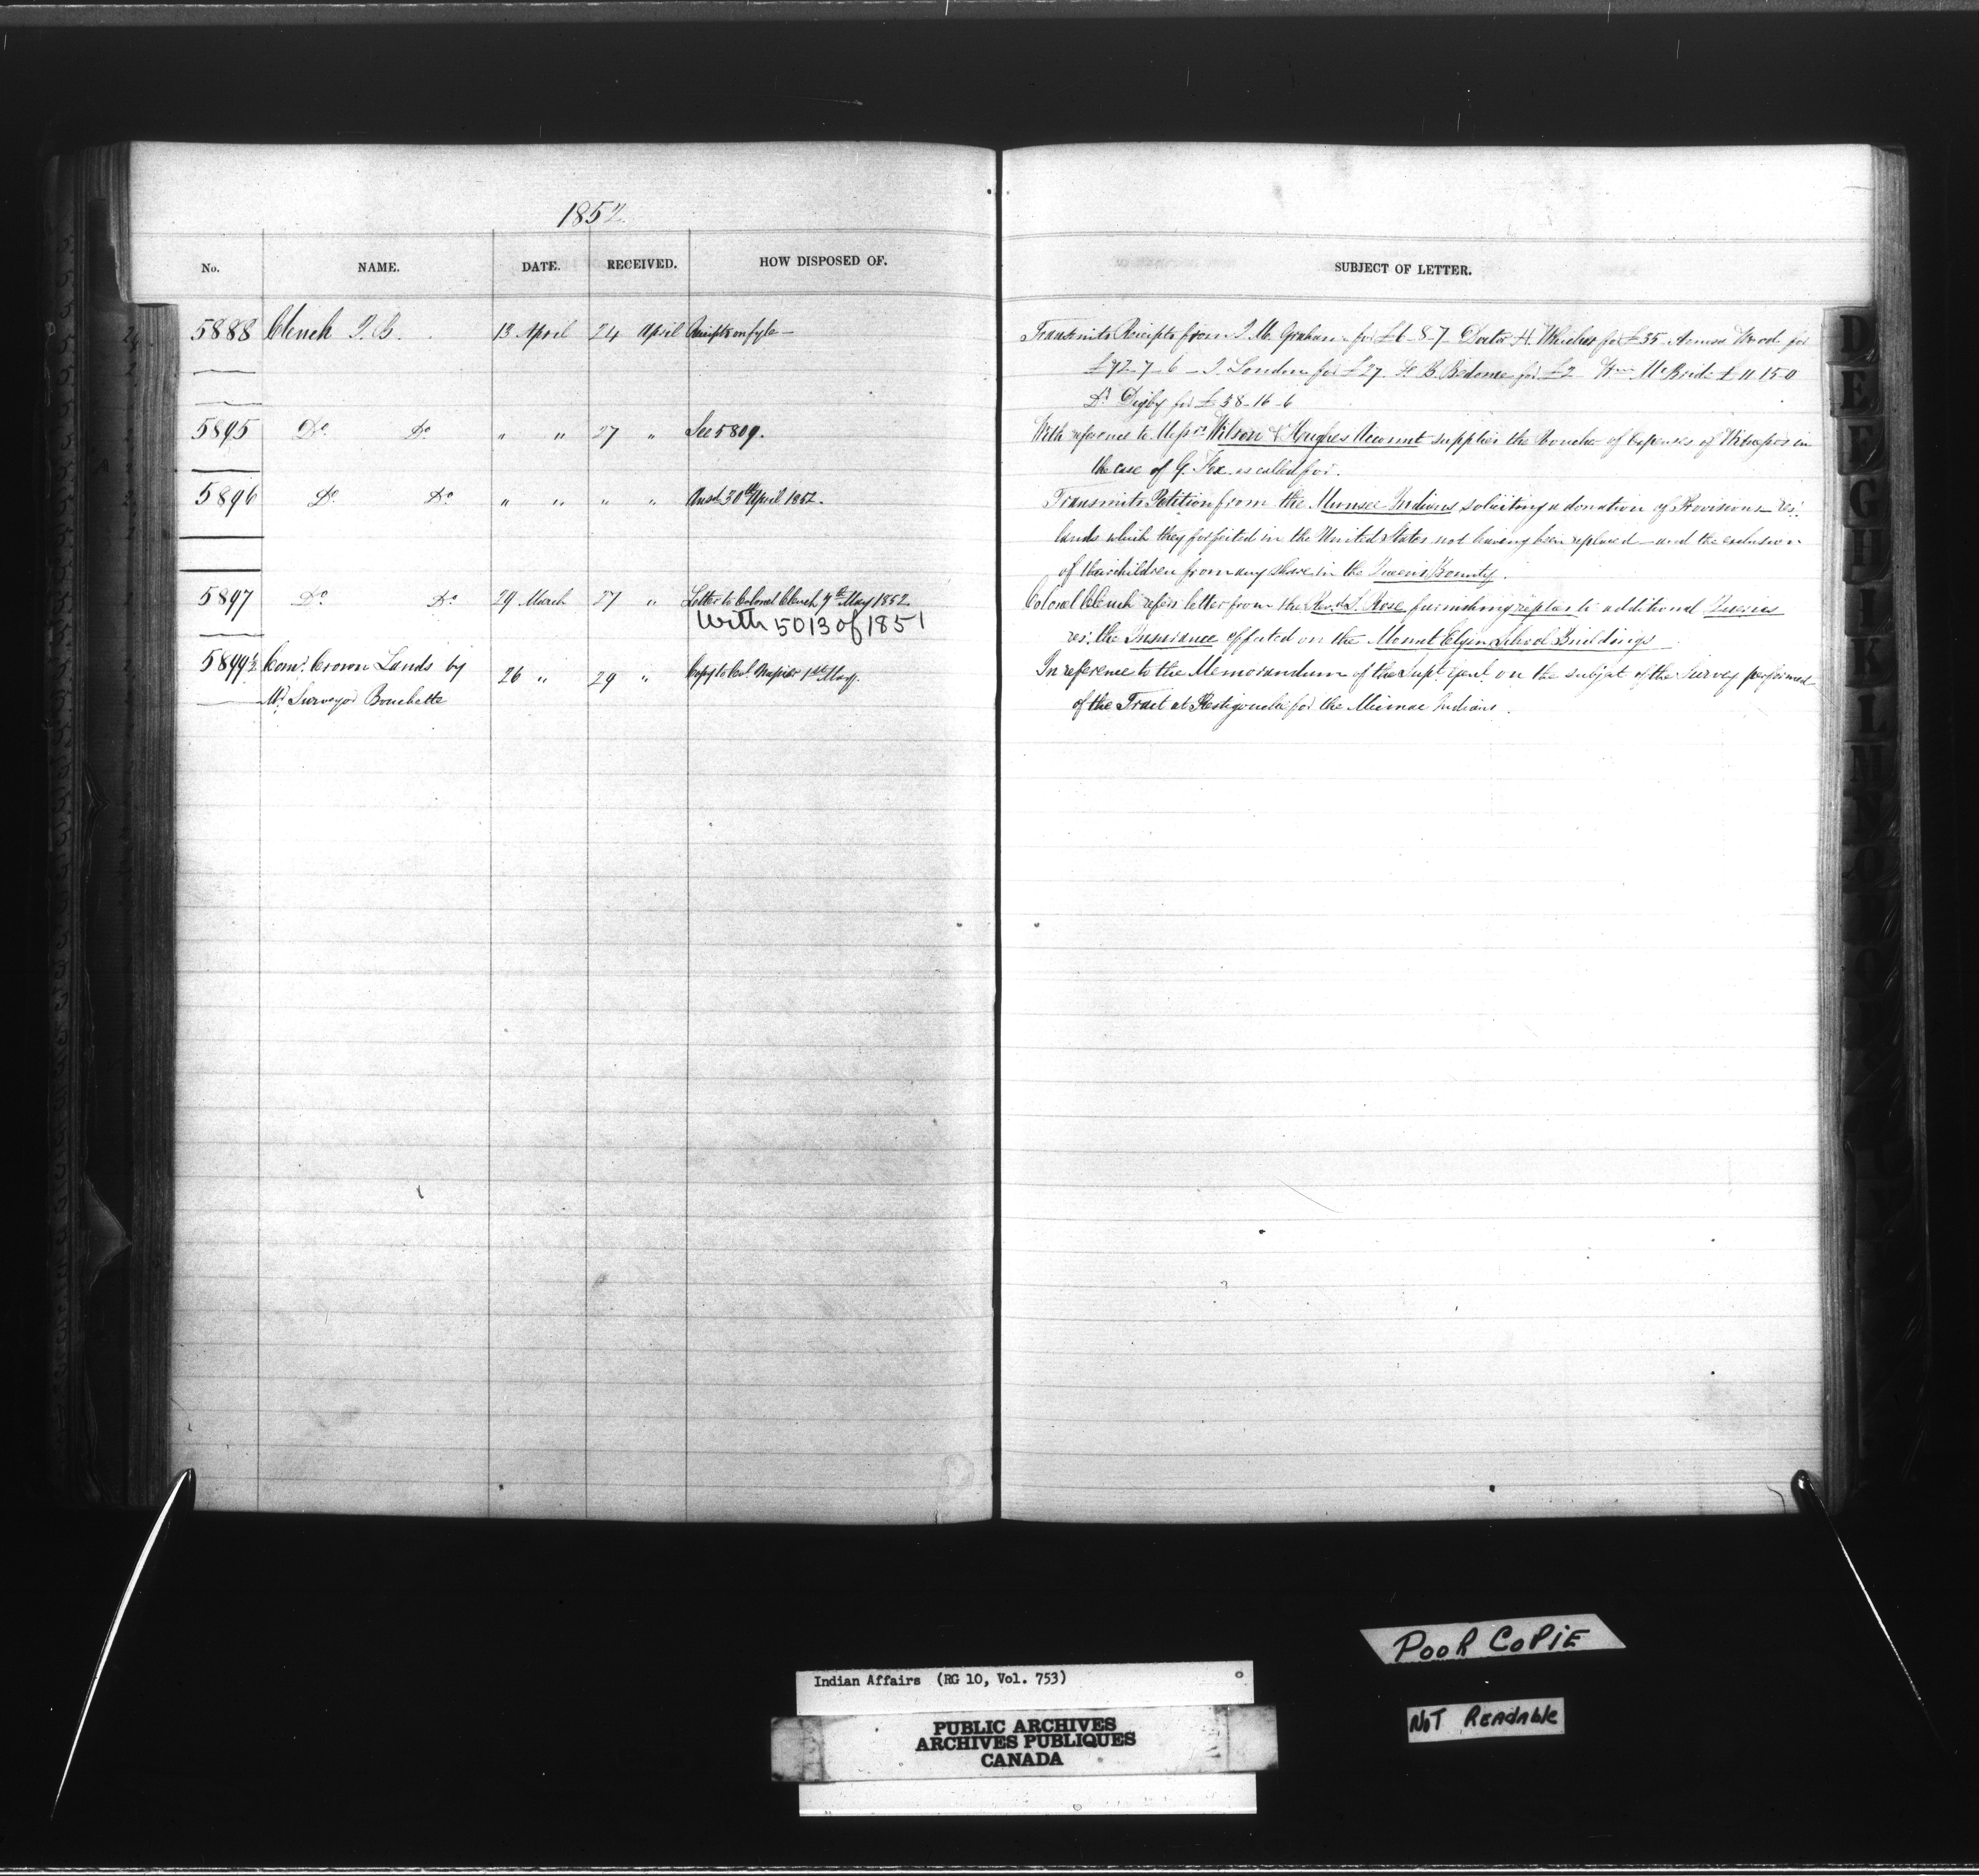 1852
No. NAME. DATE. RECEIVED. HOW DISPOSED OF. SUBJECT OF LETTER.
5888 Clench J. B. 13 April 24 April Receipts on fyle — Transmits Receipts from J. M. Graham for £6-8-7 Doctor H. for £35 Wood for
£92-7-6 — J. London for £27. F. B. Bedome for £2 Wm McBride £11-15-0
Dr Digby for £38-16-6
5895 Do Do " " 27 " See 5809. With reference to Messrs Wilson & Hughes Account supplies the Voucher of Expenses of Witnesses in
the case of G. Fox as called for.
5896 Do Do " " " " Ansd 30th April 1852. Transmits Petition from the Munsee Indians soliciting a donation of Provisions — res:
lands which they forfeited in the United States not having been replaced — and the exclusion
of their children from any share in the Queen's Bounty.
5897 Do Do 29 March 27 " Letter to Colonel Clench 7th May 1852. Colonel Clench refers letter from the Revd S. Rose furnishing replies to additional Queries
With 5013 of 1851 res: the Insurance effected on the Mount Elgin School Buildings
5899½ Comr Crown Lands by 26 " 29 " Copy to Col. Napier 1st May. In reference to the Memorandum of the Supt Genl on the subject of the Survey performed
Mr Surveyor Bouchette of the Tract at Restigouche for the Micmac Indians.
D
E
F
G
H
I
K
L
POOR COPIE
Indian Affairs (RG 10, Vol. 753)
NOT READABLE
PUBLIC ARCHIVES
ARCHIVES PUBLIQUES
CANADA